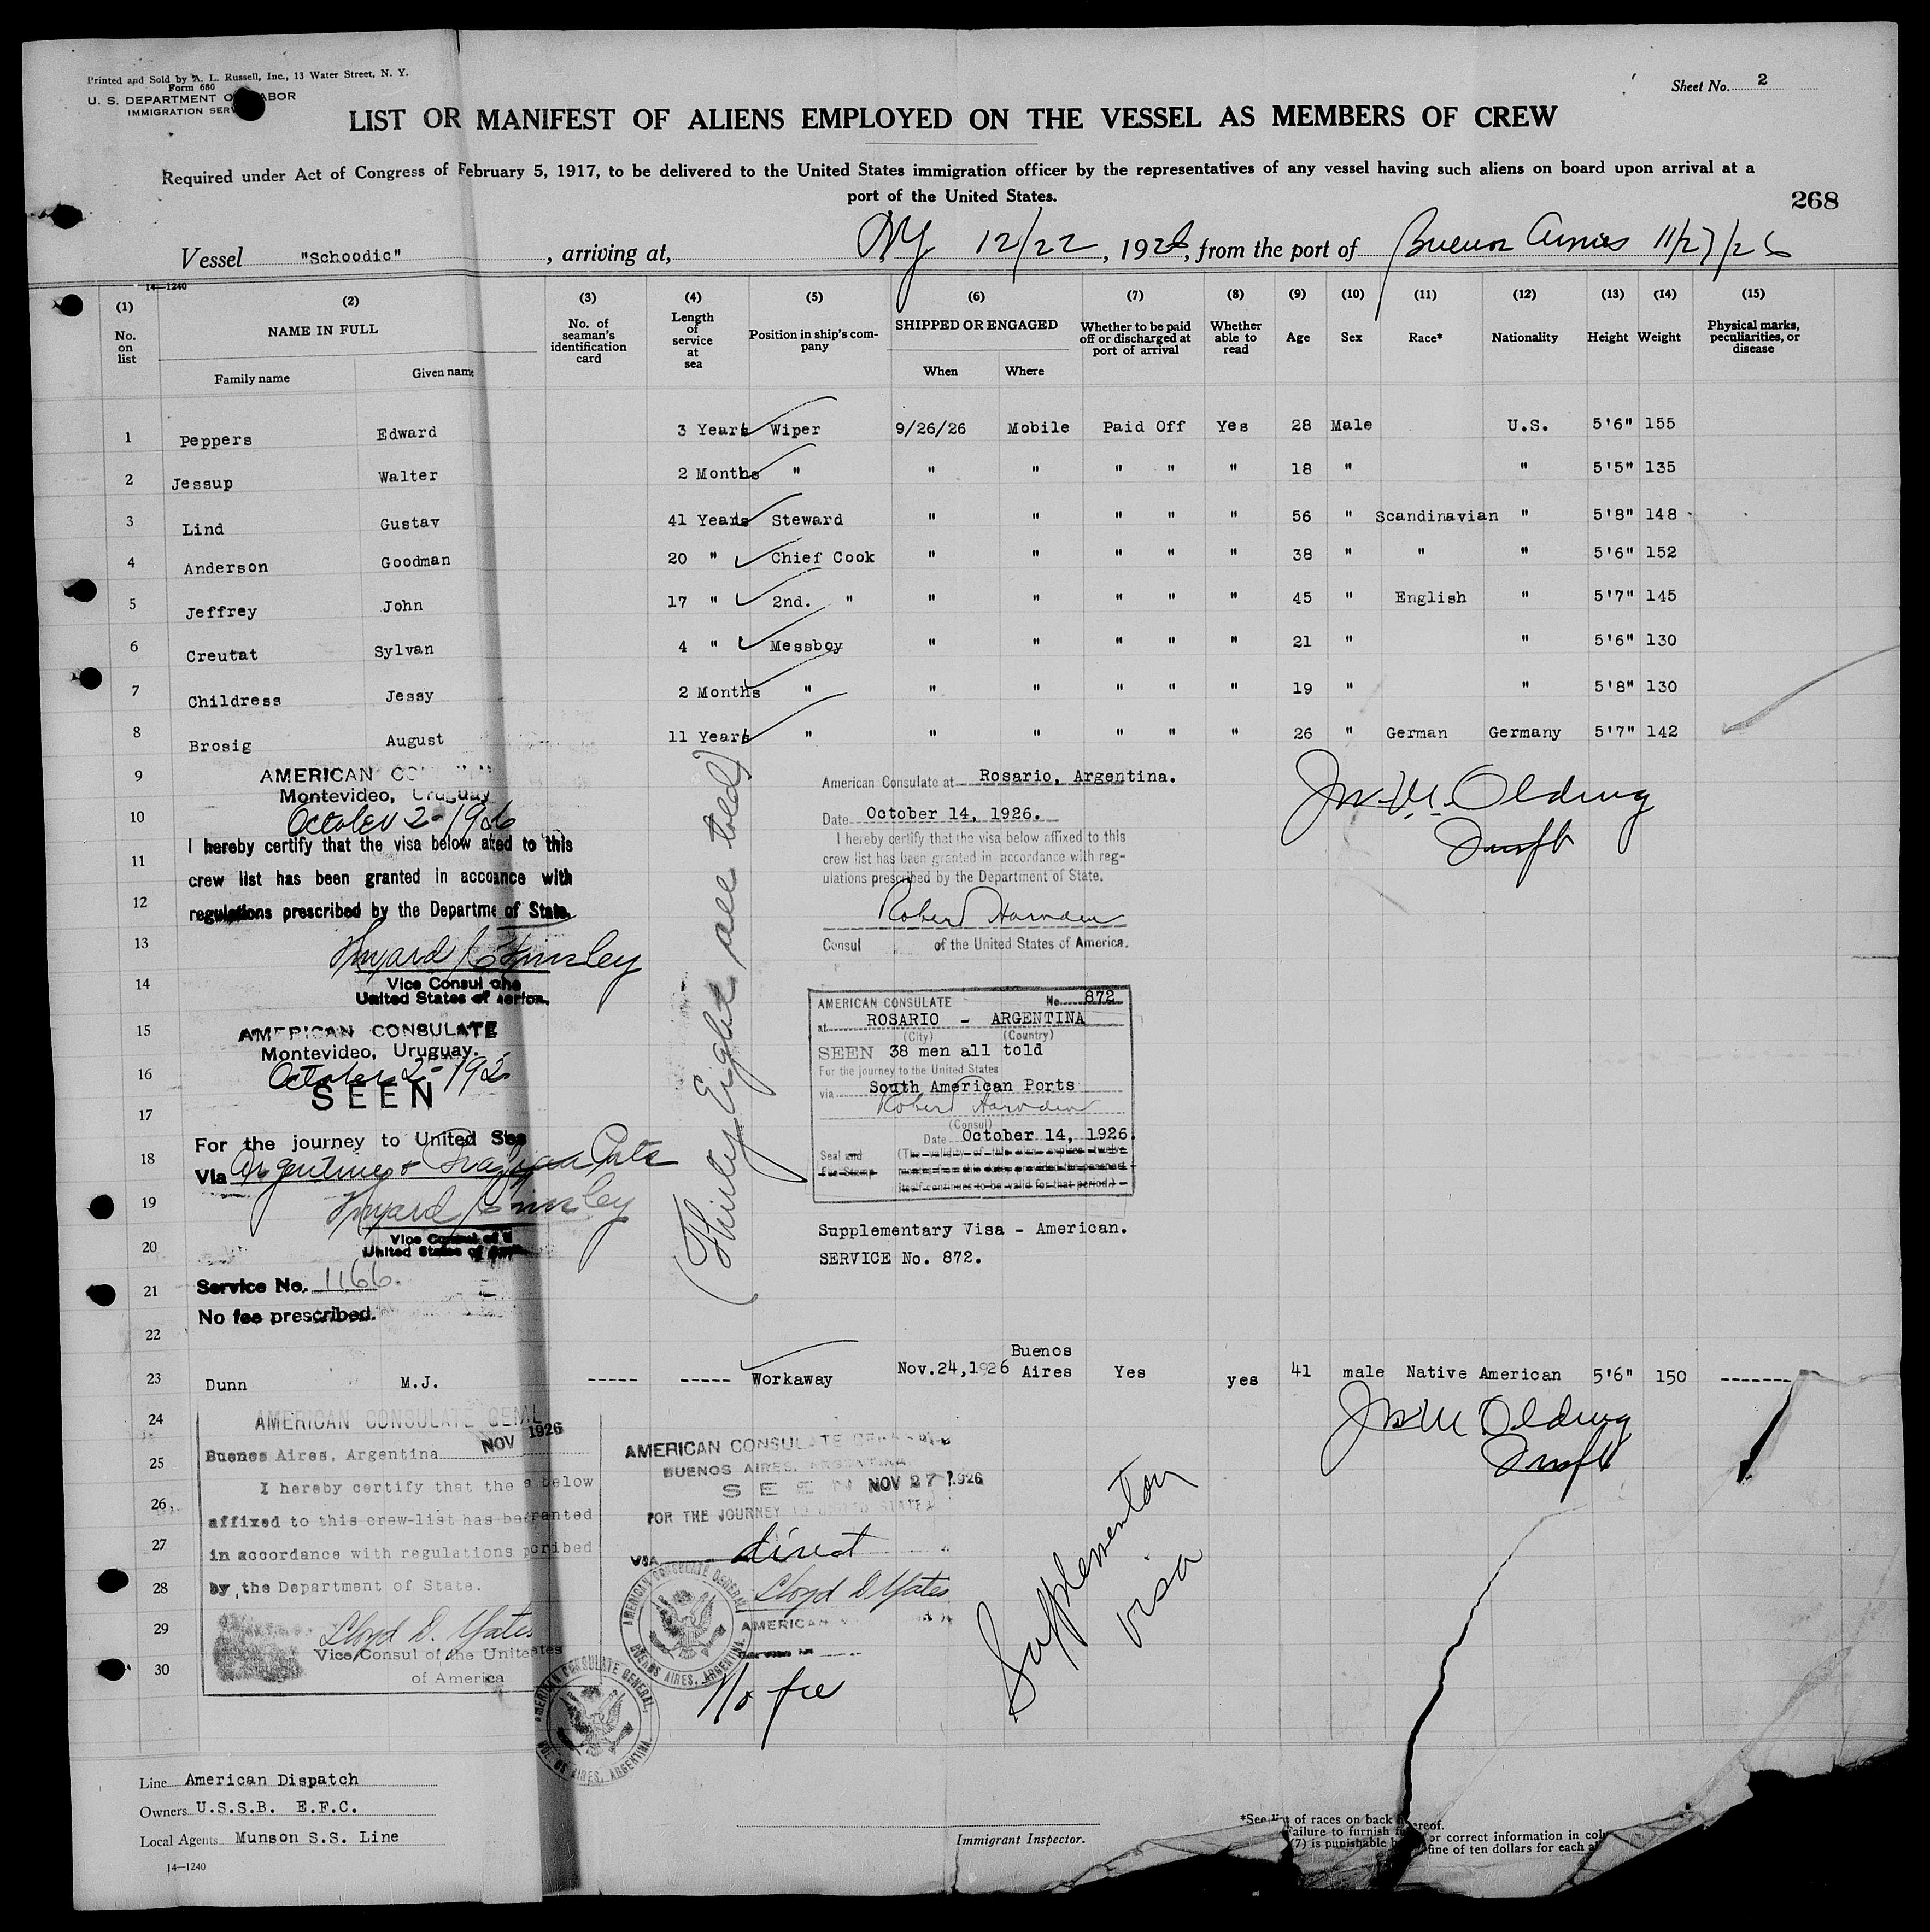 Printed and Sold by A. L. Russell, Inc., 13 Water Street, N. Y.
Form 680
U. S. DEPARTMENT O ABOR
IMMIGRATION SERV
Sheet No. 2
LIST OR MANIFEST OF ALIENS EMPLOYED ON THE VESSEL AS MEMBERS OF CREW
Required under Act of Congress of February 5, 1917, to be delivered to the United States immigration officer by the representatives of any vessel having such aliens on board upon arrival at a
port of the United States.
268
Vessel "Schoodic", arriving at, NY 12/22, 1926, from the port of Buenos Aires 11/27/26
14-1240
(1) (2) (3) (4) (5) (6) (7) (8) (9) (10) (11) (12) (13) (14) (15)
No. on list NAME IN FULL Family name Given name No. of seaman's identification card Length of service at sea Position in ship's company SHIPPED OR ENGAGED When Where Whether to be paid off or discharged at port of arrival Whether able to read Age Sex Race* Nationality Height Weight Physical marks, peculiarities, or disease
1 Peppers Edward 3 Years Wiper 9/26/26 Mobile Paid Off Yes 28 Male U.S. 5'6" 155
2 Jessup Walter 2 Months " " " " " " 18 " " 5'5" 135
3 Lind Gustav 41 Years Steward " " " " " 56 " Scandinavian " 5'8" 148
4 Anderson Goodman 20 " Chief Cook " " " " " 38 " " " 5'6" 152
5 Jeffrey John 17 " 2nd. " " " " " " 45 " English " 5'7" 145
6 Creutat Sylvan 4 " Messboy " " " " " 21 " " 5'6" 130
7 Childress Jessy 2 Months " " " " " " 19 " " 5'8" 130
8 Brosig August 11 Years " " " " " " 26 " German Germany 5'7" 142
9
10
11
12
13
14
15
16
17
18
19
20
21
22
AMERICAN CO
Montevideo, Uruguay
October 2-1926
I hereby certify that the visa below a ed to this
crew list has been granted in acco ance with
regulations prescribed by the Departme of State.
Vice Consul o he
United States of merica.
AMERICAN CONSULATE
Montevideo, Uruguay.
October 2-192
SEEN
For the journey to United S es
Via Argentine & Ports
Vice Consul of
United States of
Service No. 1166.
No fee prescribed.
(Thirty Eight all told)
American Consulate at Rosario, Argentina.
Date October 14, 1926.
I hereby certify that the visa below affixed to this
crew list has been granted in accordance with reg-
ulations prescribed by the Department of State.
Robert Harnden
Consul of the United States of America.
AMERICAN CONSULATE No. 872
at ROSARIO - ARGENTINA
(City) (Country)
SEEN 38 men all told
For the journey to the United States
via South American Ports
Robert Harnden
(Consul)
Date October 14, 1926.
Seal and Fee Stamp
(The validity of this visa expires twelve
months from this date, provided the passport
itself continues to be valid for that period.)
Supplementary Visa - American.
SERVICE No. 872.
Jno M. Olding
23 Dunn M.J. ----- ----- Workaway Nov.24,1926 Buenos Aires Yes yes 41 male Native American 5'6" 150 -------
24
25
26
27
28
29
30
Jno M Olding
AMERICAN CONSULATE GENL
Buenos Aires, Argentina NOV 1926
I hereby certify that the s below
affixed to this crew-list has be ranted
in accordance with regulations p cribed
by the Department of State.
Lloyd D. Yates
Vice Consul of the Unite ates
of America
AMERICAN CONSULATE GENERAL
BUENOS AIRES, ARGENTINA
SEEN NOV 27 1926
FOR THE JOURNEY TO UNITED STATES
VIA direct
Lloyd D. Yates
AMERICAN
AMERICAN CONSULATE GENERAL
BUENOS AIRES, ARGENTINA
No fee
AMERICAN CONSULATE GENERAL,
BUENOS AIRES, ARGENTINA
Supplementary
visa
Line American Dispatch
Owners U.S.S.B. E.F.C.
Local Agents Munson S.S. Line
14-1240
Immigrant Inspector.
*See list of races on back hereof.
Failure to furnish f or correct information in col
(7) is punishable b fine of ten dollars for each a